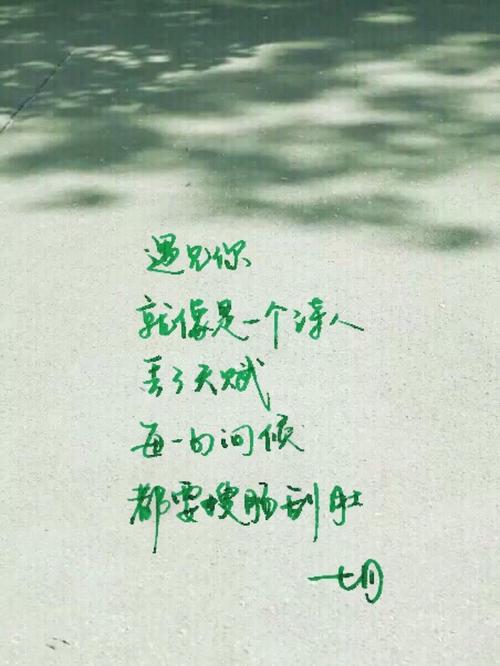 遇见你
就像是一个诗人
丢了天赋
每一句问候
都要搜肠刮肚
一七月